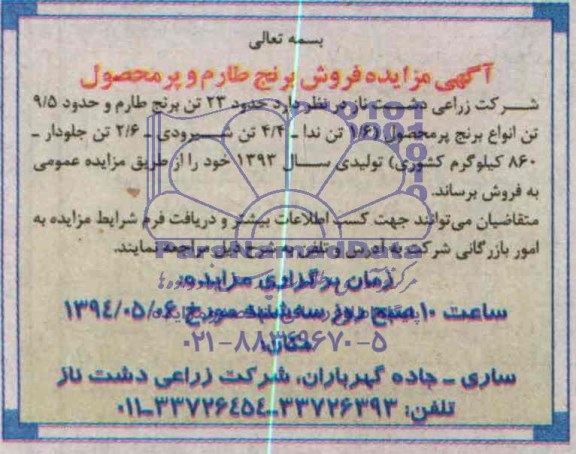 بسمه تعالی
آگهی مزایده فروش برنج طارم و پر محصول
شرکت زراعی دشت ناز در نظر دارد حدود ۲۳ تن برنج طارم و حدود ۹/۵
تن انواع برنج پرمحصول (۱/۶ تن ندا ـ ۴/۴ تن شیرودی ـ ۲/۶ تن جلودار ـ
۸۶۰ کیلوگرم کشوری) تولیدی سال ۱۳۹۳ خود را از طریق مزایده عمومی
به فروش برساند.
متقاضیان می‌توانند جهت کسب اطلاعات بیشتر و دریافت فرم شرایط مزایده به
امور بازرگانی شرکت به آدرس و تلفن به شرح ذیل مراجعه نمایند.
ParsNamadData
زمان برگزاری مزایده:
ساعت ۱۰ صبح روز سه‌شنبه مورخ ۱۳۹۴/۰۵/۰۶
۰۲۱-۸۸۳۴۹۶۷۰-۵
مکان:
ساری ـ جاده گهرباران، شرکت زراعی دشت ناز
تلفن: ۳۳۷۲۶۳۹۳-۳۳۷۲۶۴۵۴-۰۱۱